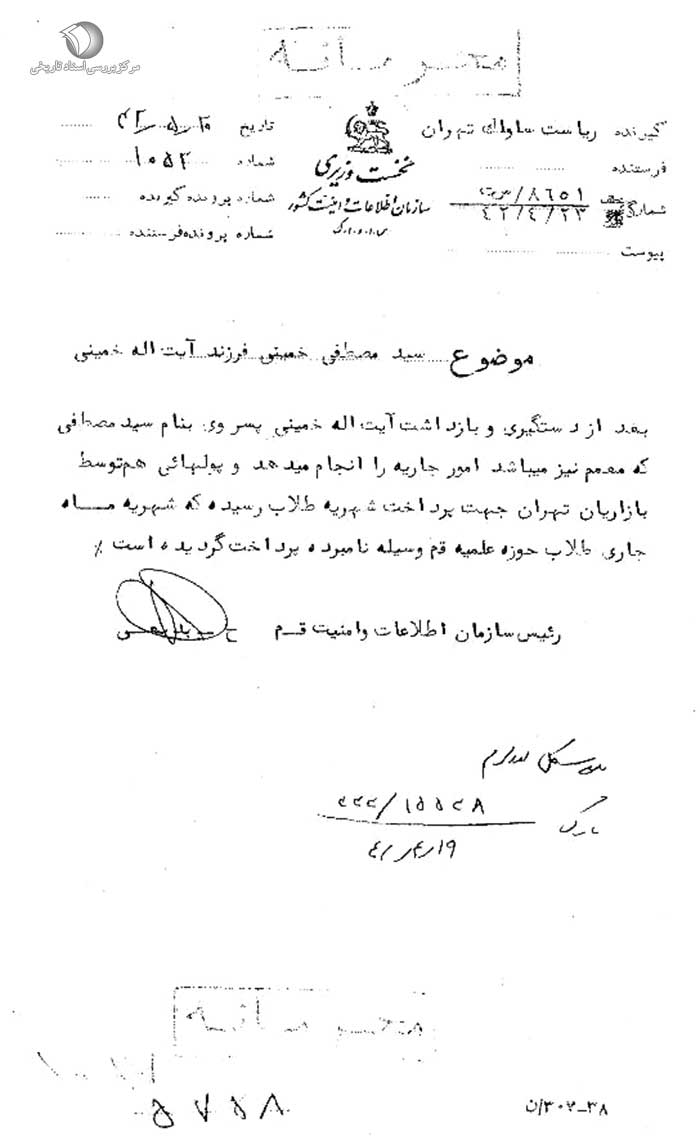 مرکز بررسی اسناد تاریخی
محرمانه
گیرنده ریاست ساواک تهران
فرستنده
شماره ۸۶۵۱/
۴۲/۴/۲۳
پیوست
نخست وزیری
سازمان اطلاعات و امنیت کشور
س.ا.و.ا.ک
تاریخ
شماره ۱۰۵۲
شماره پرونده گیرنده
شماره پرونده فرستنده
موضوع سید مصطفی خمینی فرزند آیت اله خمینی
بعد از دستگیری و بازداشت آیت اله خمینی پسر وی بنام سید مصطفی
که معمم نیز میباشد امور جاریه را انجام میدهد و پولهائی هم توسط
بازاریان تهران جهت پرداخت شهریه طلاب رسیده که شهریه مــاه
جاری طلاب حوزه علمیه قم وسیله نامبرده پرداخت گردیده است ٪
رئیس سازمان اطلاعات وامنیت قــم
محرمانه
۵۷۵۸
۳۸_۳۰۲/ن